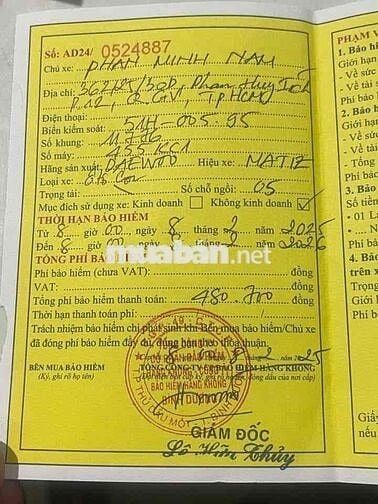 Số: AD24/ 0524887
Chủ xe: PHAN MINH NAM
Địa chỉ: 362/25/30D, Phan Huy Ích
P.12, Q.GV, TP HCM
Điện thoại:
Biển kiểm soát: 51H-005.95
Số khung:
Số máy:
Hãng sản xuất: DAEWOO Hiệu xe: MATIZ
Loại xe:
Trọng tải: Số chỗ ngồi: 05
Mục đích sử dụng xe: Kinh doanh Không kinh doanh
THỜI HẠN BẢO HIỂM
Từ 8 giờ 00 ngày 8 tháng 2 năm 2025
Đến 8 giờ 00 ngày 8 tháng 2 năm 2026
muaban.net
TỔNG PHÍ BẢO HIỂM
Phí bảo hiểm (chưa VAT): đồng
VAT: đồng
Tổng phí bảo hiểm thanh toán: 480.700 đồng
Thời hạn thanh toán phí:
Trách nhiệm bảo hiểm chỉ phát sinh khi Bên mua bảo hiểm/Chủ xe
đã đóng phí bảo hiểm đầy đủ, đúng hạn theo thỏa thuận.
BÊN MUA BẢO HIỂM TỔNG CÔNG TY BẢO HIỂM HÀNG KHÔNG
(Ký, ghi rõ họ tên)
BẢO HIỂM HÀNG KHÔNG
BÌNH DƯƠNG
GIÁM ĐỐC
Lê Hiền Thủy
PHẠM V
1. Bảo hi
Giới hạn
- Về sức
- Về tài
Phí bảo
2. Bảo
Giới h
- Về s
- Về t
Phí b
3. Bảo
Số n
01 La
4. Bả
trên x
Giới
Phí
nếu